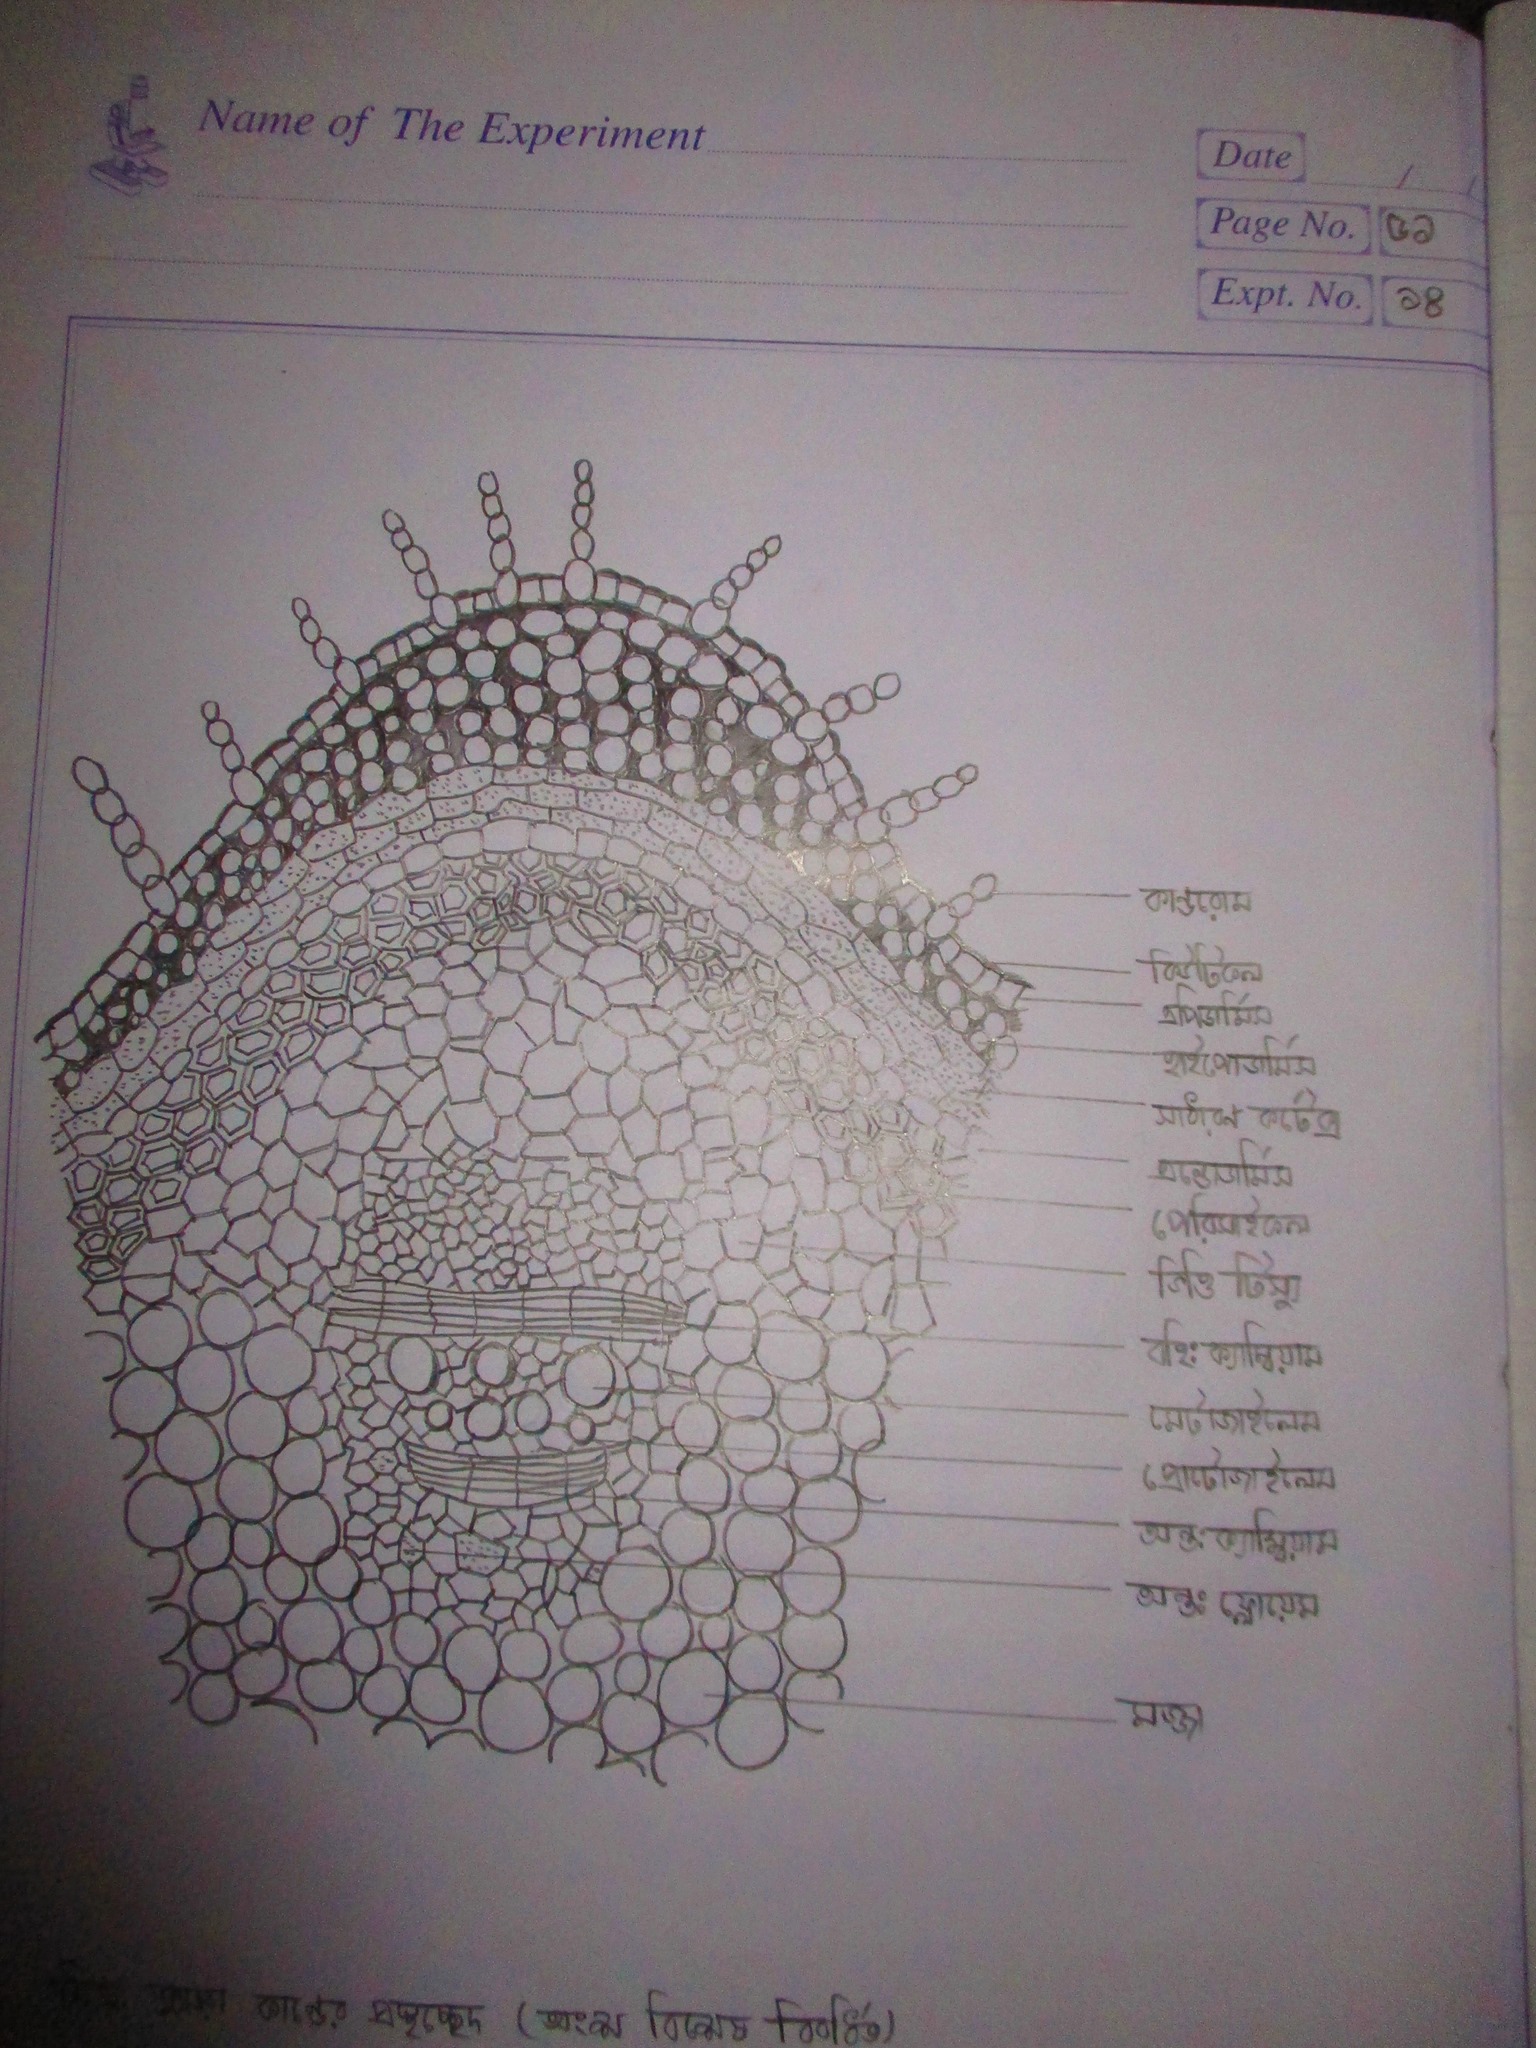 Name of The Experiment
Date / /
Page No. ৩১
Expt. No. ১৪
কান্ডরোম
কিউটিকল
এপিডার্মিস
হাইপোডার্মিস
সাধারণ কর্টেক্স
এন্ডোডার্মিস
পেরিসাইকল
ভিত্তি টিস্যু
বহিঃ ক্যাম্বিয়াম
মেটাজাইলেম
প্রোটোজাইলেম
অন্তঃ ক্যাম্বিয়াম
অন্তঃ ফ্লোয়েম
মজ্জা
কান্ডের প্রস্থচ্ছেদ (অংশ বিশেষ বিবর্ধিত)